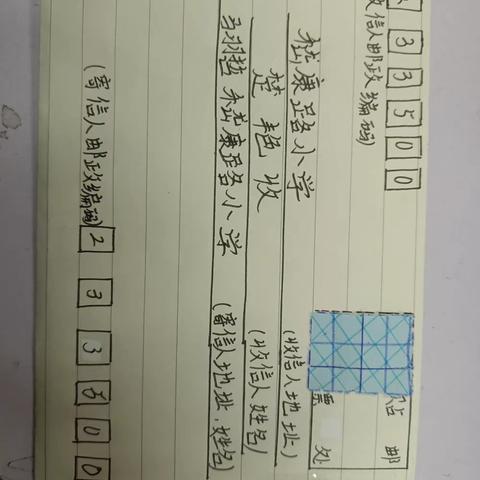 3 3 5 0 0
贴 邮
收信人邮政编码)
票 处
嵇康路小学 (收信人地址)
楚艳收 (收信人姓名)
嵇康路小学 (寄信人地址.姓名)
(寄信人邮政编码) 2 3 3 5 0 0